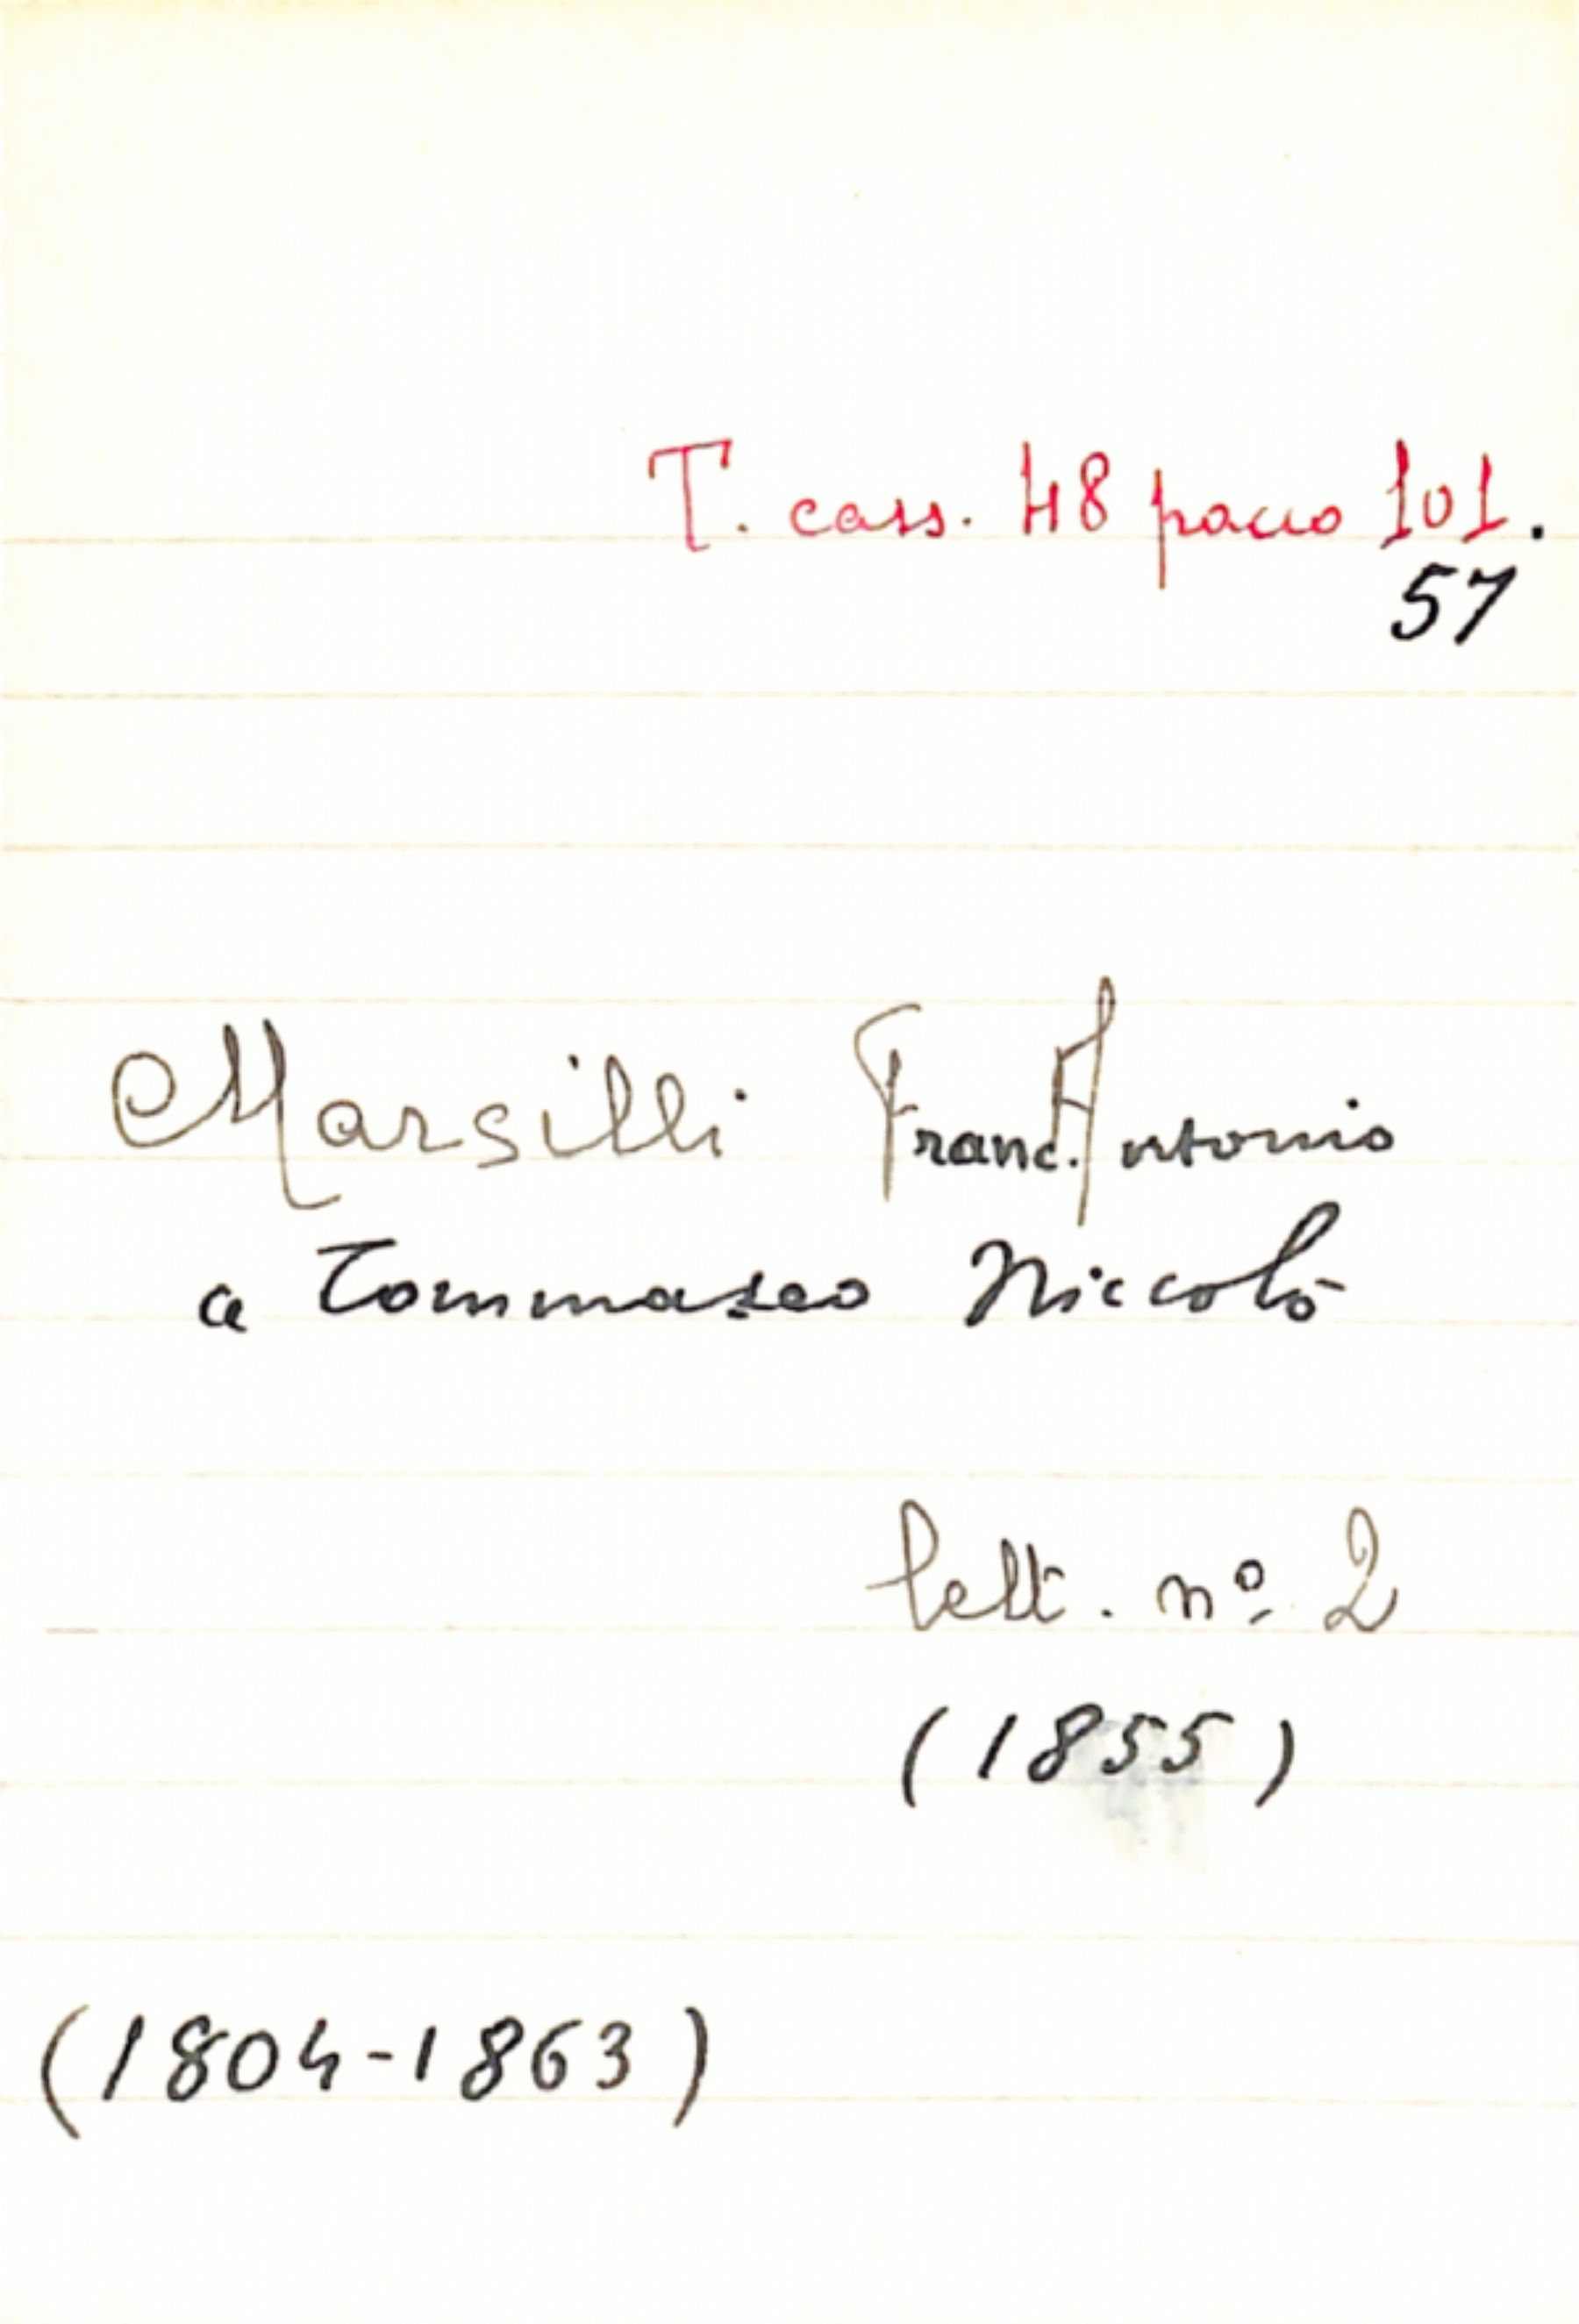 T. cass. 48 pacco 101.
57
Marsilli Franc. Antonio
a Tommaseo Niccolò
lett. nº 2
(1855)
(1804-1863)